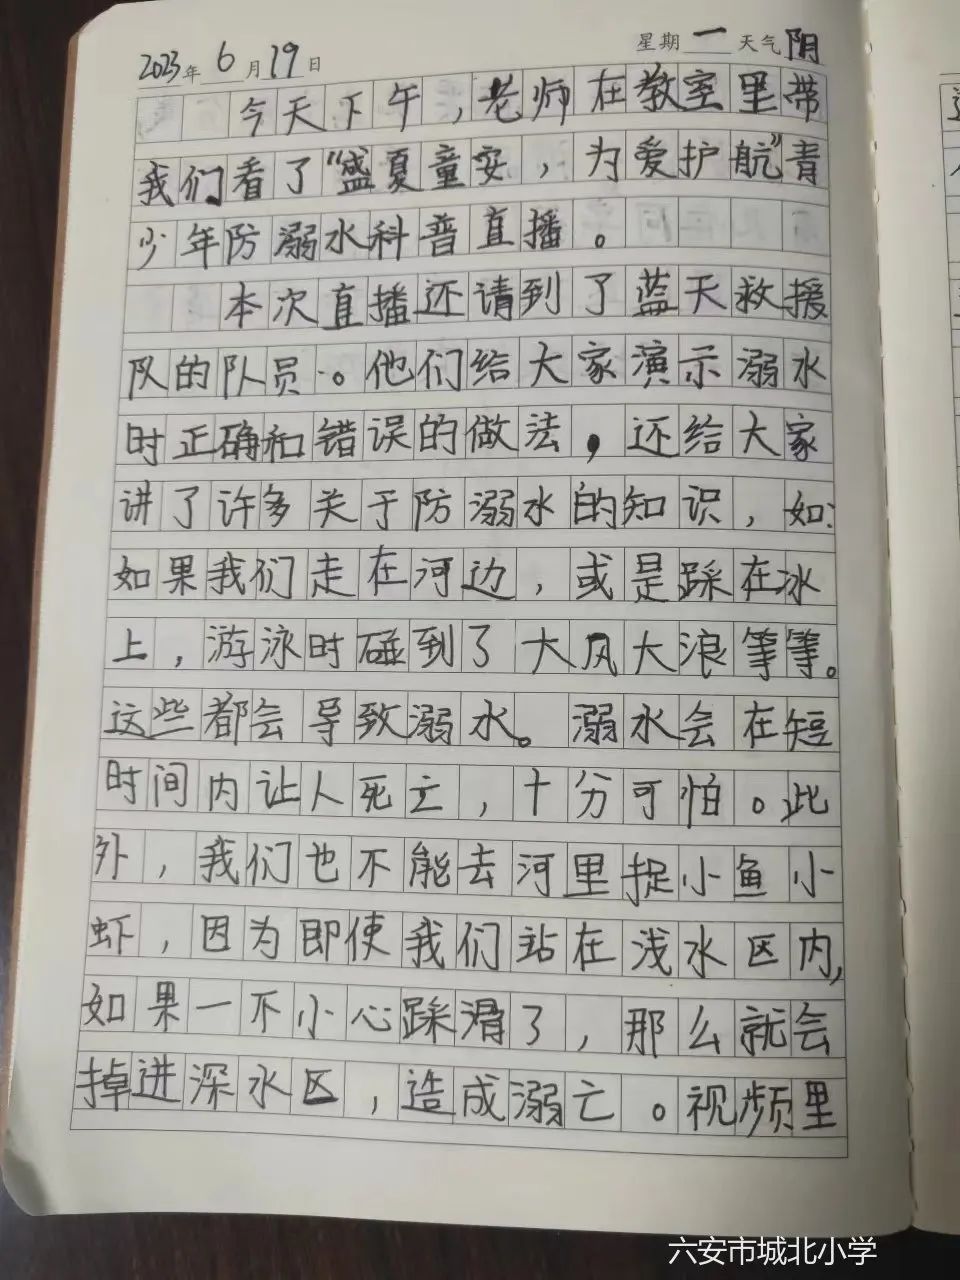 2023年6月19日 星期一 天气阴
今天下午，老师在教室里带
我们看了“盛夏童安，为爱护航”青
少年防溺水科普直播。
本次直播还请到了蓝天救援
队的队员。他们给大家演示溺水
时正确和错误的做法，还给大家
讲了许多关于防溺水的知识，如：
如果我们走在河边，或是踩在冰
上，游泳时碰到了大风大浪等等。
这些都会导致溺水。溺水会在短
时间内让人死亡，十分可怕。此
外，我们也不能去河里捉小鱼小
虾，因为即使我们站在浅水区内，
如果一不小心踩滑了，那么就会
掉进深水区，造成溺亡。视频里
六安市城北小学